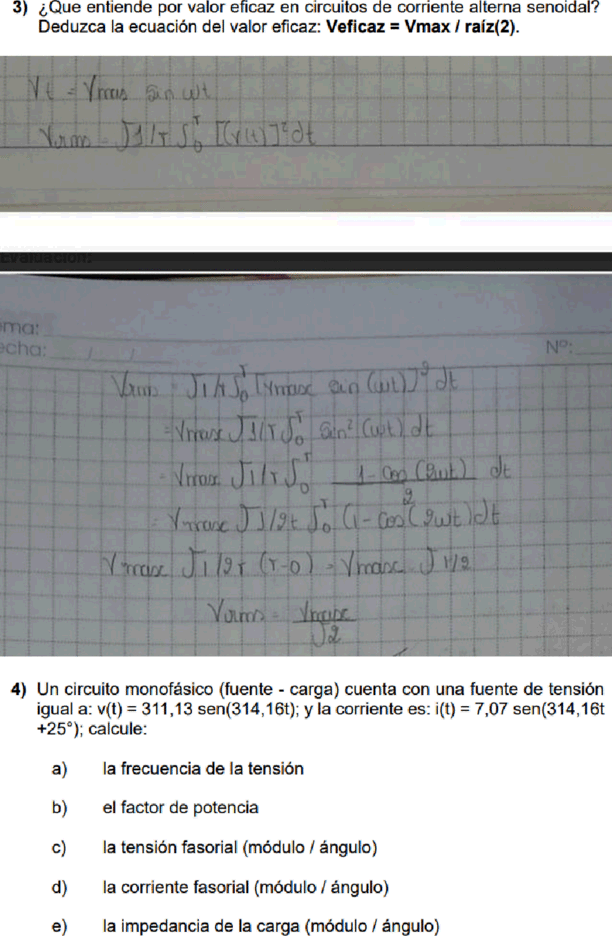 3) ¿Que entiende por valor eficaz en circuitos de corriente alterna senoidal?
Deduzca la ecuación del valor eficaz: Veficaz = Vmax / raíz(2).
Vt = Vmas Sen wt
Vrms = √1/T ∫₀ᵀ [(v(t)]² dt
Evaluación:
ema:
echa: / / Nº:
Vrms = √1/T ∫₀ᵀ [Vmax sin (wt)]² dt
= Vmax √1/T ∫₀ᵀ Sin² (wt) dt
= Vmax √1/T ∫₀ᵀ 1 - cos (2wt) / 2 dt
= Vmax √1/2t ∫₀ᵀ (1 - Cos (2wt) dt
Vmax √1/2T (T-0) = Vmax √1/2
Vrms = Vmax / √2
4) Un circuito monofásico (fuente - carga) cuenta con una fuente de tensión
igual a: v(t) = 311,13 sen(314,16t); y la corriente es: i(t) = 7,07 sen(314,16t
+25°); calcule:
a) la frecuencia de la tensión
b) el factor de potencia
c) la tensión fasorial (módulo / ángulo)
d) la corriente fasorial (módulo / ángulo)
e) la impedancia de la carga (módulo / ángulo)